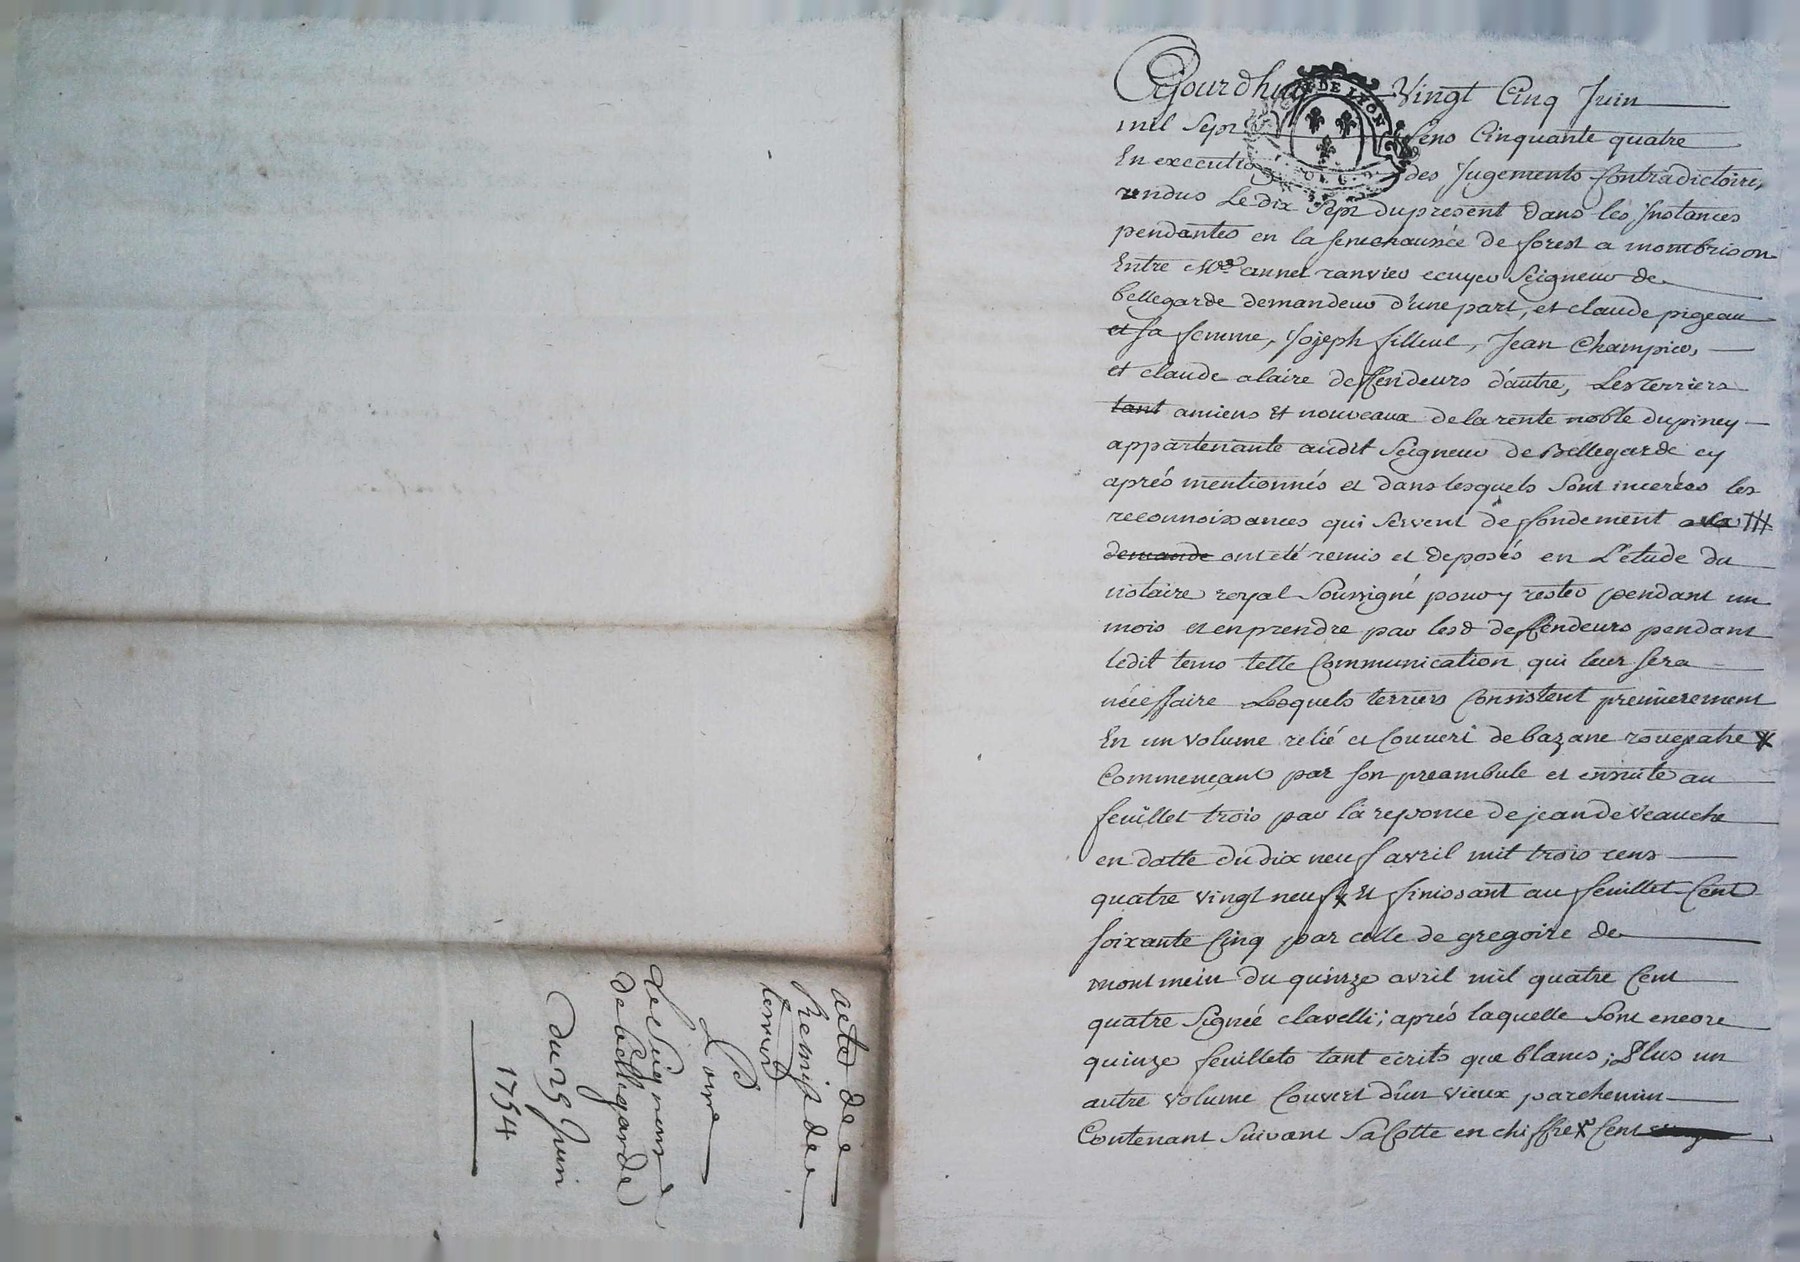 acte de
Remise de
terriers
Pour
Le Seigneur
de bellegarde
du 25 Juin
1754
Cejourdhuy Vingt Cinq Juin
mil Sept Cens Cinquante quatre
En execution des Jugements Contradictoires
rendus Le dix Sept du present dans les Instances
pendantes en la senechaussée de forest a montbrison
Entre Mre annet ranvier ecuyer Seigneur de
bellegarde demandeur d'une part, et claude pigeau
et sa femme, Joseph filleul, Jean Champier,
et claude alaire deffendeurs d'autre, Les terriers
tant anciens Et nouveaux de la rente noble du piney
appartenante audit Seigneur de Bellegarde cy
aprés mentionnés et dans lesquels Sont incerées les
reconnoissances qui Servent de fondement a la
demande ont été remis et deposés en L'etude du
notaire royal Soussigné pour y rester pendant un
mois et en prendre par lesd deffendeurs pendant
ledit tems telle Communication qui leur sera
nécessaire Lesquels terriers Consistent premierement
En un volume relié et Couvert de bazane rougeatre
Commençant par son preambule et ensuite au
feuillet trois par la reponce de jean de Veauche
en datte du dix neuf avril mil trois cens
quatre vingt neuf Et finissant au feuillet Cent
soixante Cinq par celle de gregoire de
montmein du quinze avril mil quatre Cent
quatre Signée clavelli; aprés laquelle Sont encore
quinze feuillets tant ecrits que blancs; Plus un
autre volume Couvert d'un vieux parchemin
Contenant Suivant Sa Cotte en chiffre Cent
DE LYON